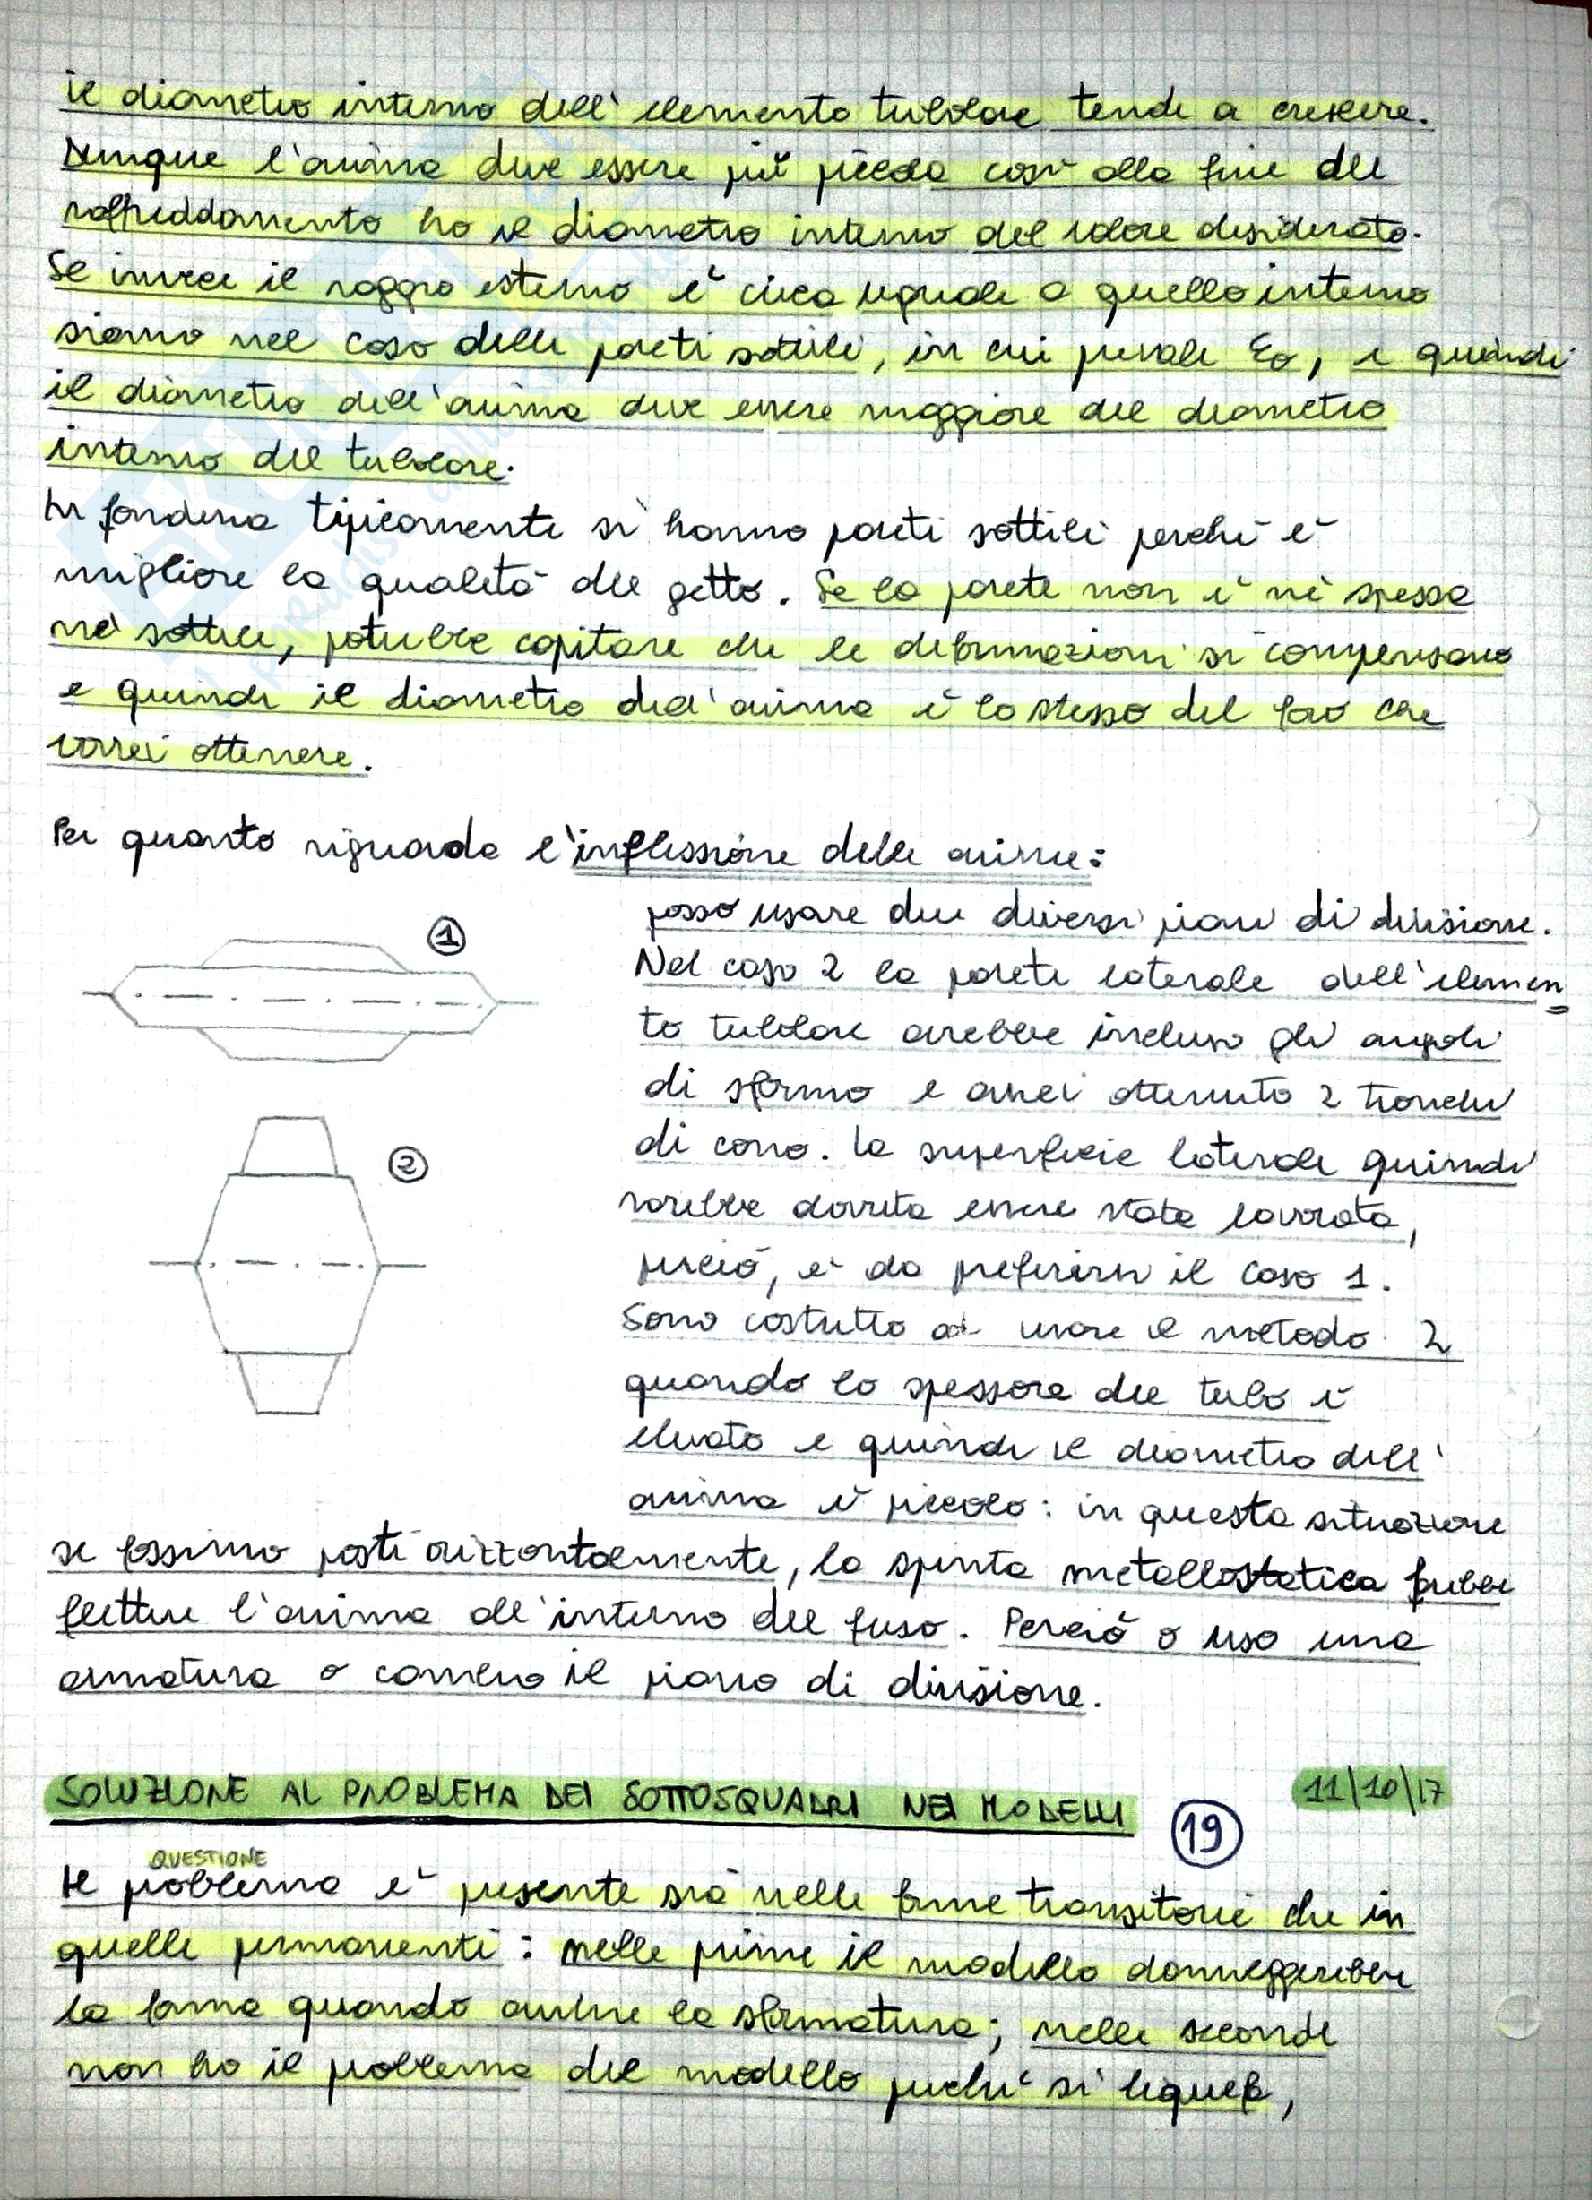 il diametro interno dell'elemento tubolare tende a crescere.
Dunque l'anima deve essere più piccola così alla fine del
raffreddamento ho il diametro interno del valore desiderato.
Se invece il raggio esterno è circa uguale a quello interno
siamo nel caso delle pareti sottili, in cui prevale εθ, e quindi
il diametro dell'anima deve essere maggiore del diametro
interno del tubolare.
In fonderia tipicamente si hanno pareti sottili perché è
migliore la qualità del getto. Se la parete non è né spessa
né sottile, potrebbe capitare che le deformazioni si compensano
e quindi il diametro dell'anima è lo stesso del foro che
vorrei ottenere.
Per quanto riguarda l'inflessione delle anime:
1
posso usare due diversi piani di divisione.
Nel caso 2 la parete laterale dell'elemen=
to tubolare avrebbe incluso gli angoli
di sformo e avrei ottenuto 2 tronchi
2
di cono. La superficie laterale quindi
sarebbe dovuta essere stata lavorata,
perciò, è da preferirsi il caso 1.
Sono costretto ad usare il metodo 2
quando lo spessore del tubo è
elevato e quindi il diametro dell'
anima è piccolo: in questa situazione
se fossimo posti orizzontalmente, la spinta metallostatica farebbe
flettere l'anima all'interno del fuso. Perciò o uso una
armatura o cambio il piano di divisione.
SOLUZIONE AL PROBLEMA DEI SOTTOSQUADRI NEI MODELLI
19
11/10/17
QUESTIONE
Il problema è presente sia nelle forme transitorie che in
quelle permanenti: nelle prime il modello danneggerebbe
la forma quando avviene la sformatura; nelle seconde
non ho il problema del modello perché si liquefa,